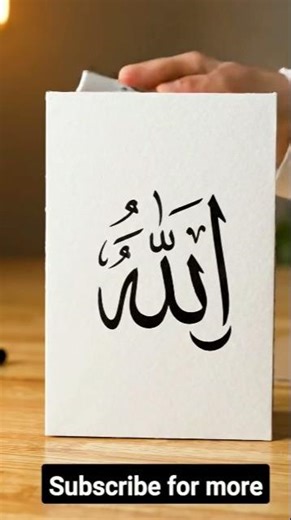 الله
Subscribe for more